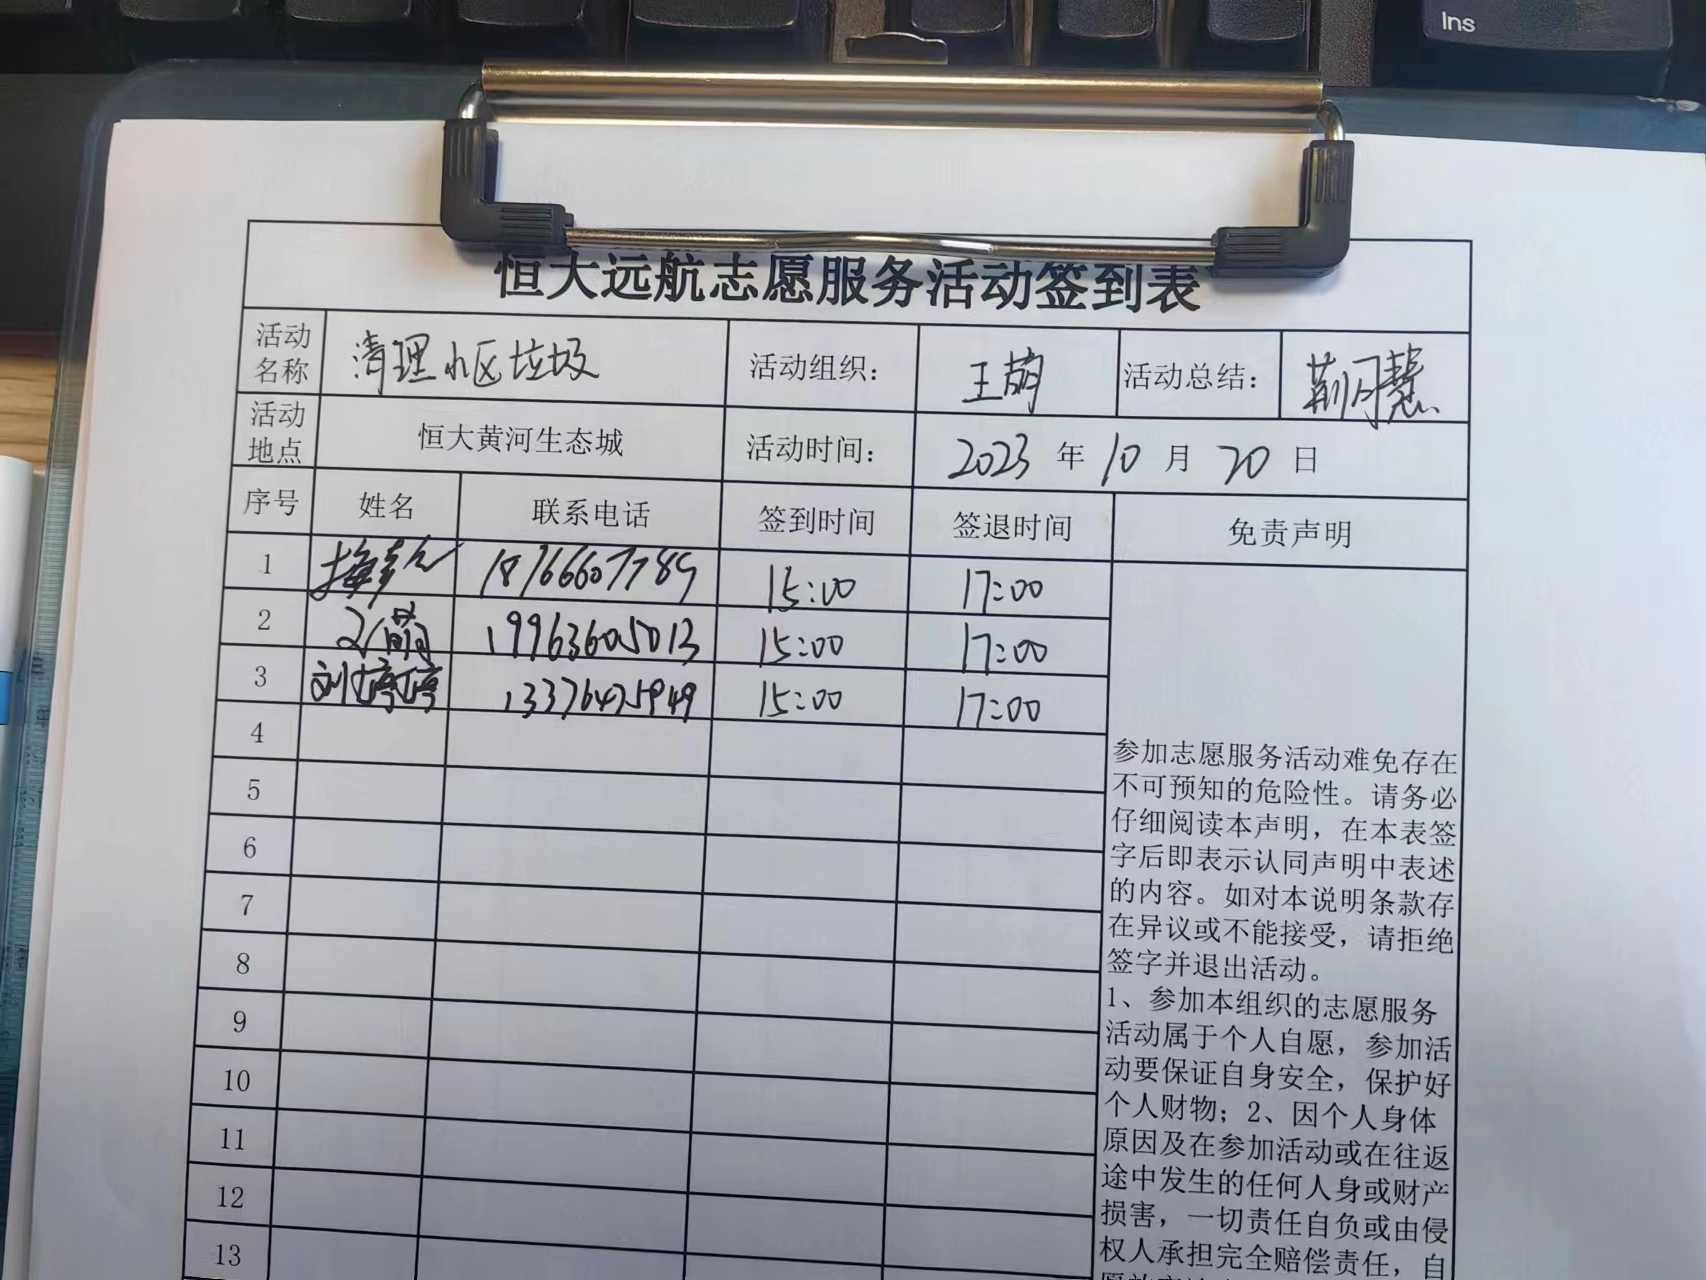 Ins
恒大远航志愿服务活动签到表
活动名称 清理小区垃圾 活动组织: 王萌 活动总结: 荆月慧
活动地点 恒大黄河生态城 活动时间: 2023 年 10 月 20 日
序号 姓名 联系电话 签到时间 签退时间 免责声明
1 18766607789 15:00 17:00
2 王萌 19963605013 15:00 17:00
3 刘婷婷 13376475949 15:00 17:00
4
5
6
7
8
9
10
11
12
13
参加志愿服务活动难免存在
不可预知的危险性。请务必
仔细阅读本声明，在本表签
字后即表示认同声明中表述
的内容。如对本说明条款存
在异议或不能接受，请拒绝
签字并退出活动。
1、参加本组织的志愿服务
活动属于个人自愿，参加活
动要保证自身安全，保护好
个人财物；2、因个人身体
原因及在参加活动或在往返
途中发生的任何人身或财产
损害，一切责任自负或由侵
权人承担完全赔偿责任，自